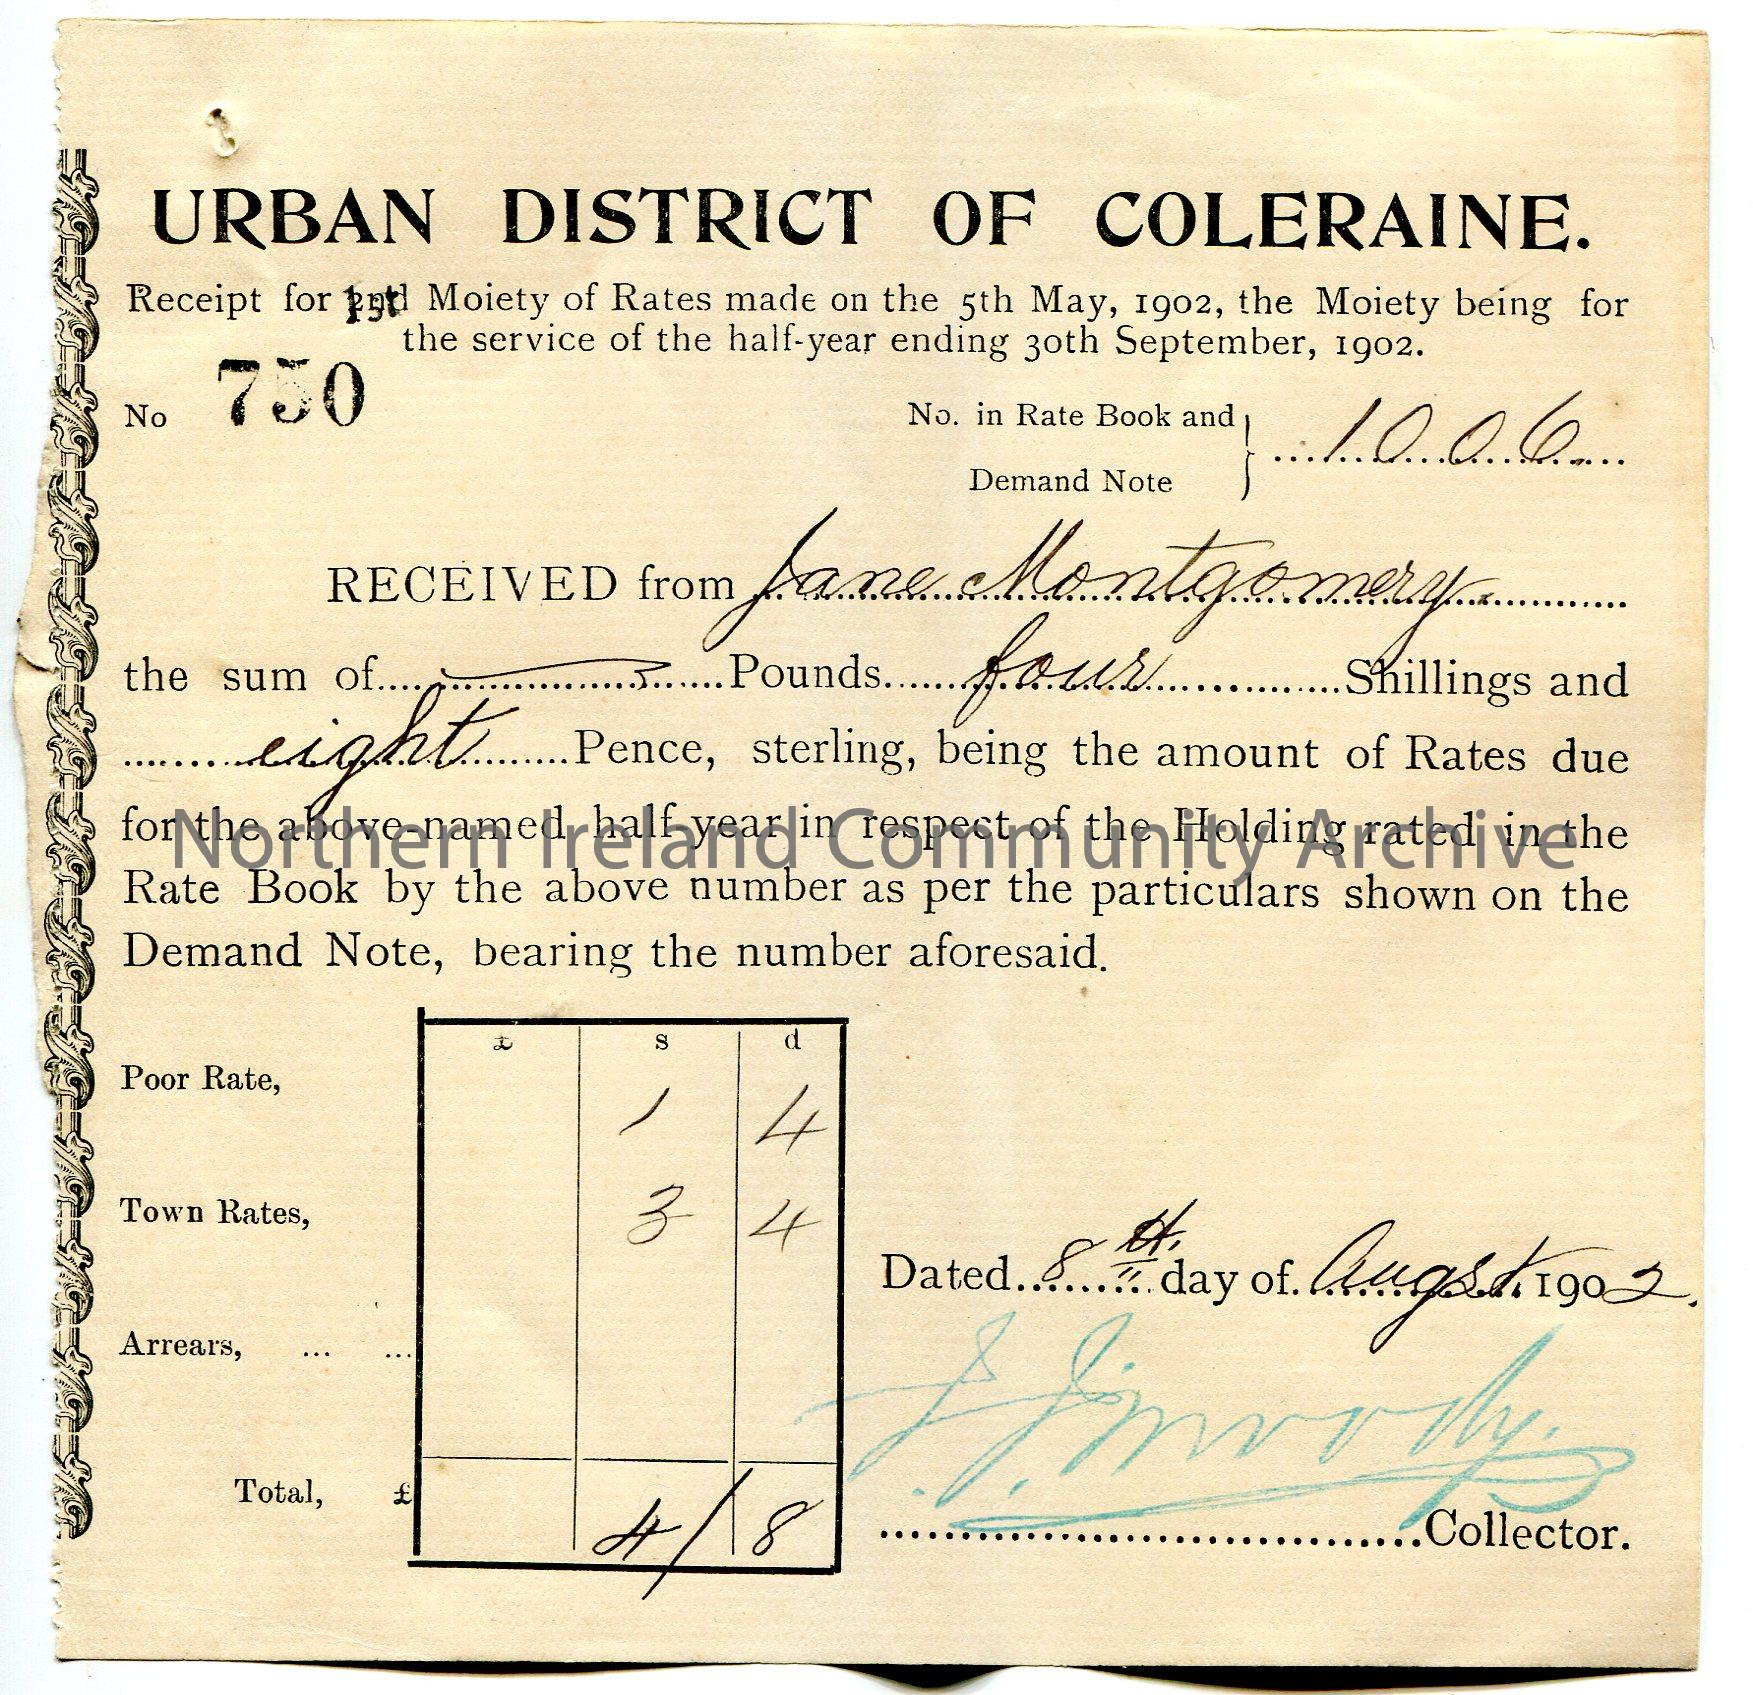 URBAN DISTRICT OF COLERAINE.
Receipt for 1st Moiety of Rates made on the 5th May, 1902, the Moiety being for
the service of the half-year ending 30th September, 1902.
No 750
No. in Rate Book and
Demand Note } 1006
RECEIVED from Jane Montgomery
the sum of Pounds four Shillings and
eight Pence, sterling, being the amount of Rates due
for the above-named half-year in respect of the Holding rated in the
Northern Ireland Community Archive
Rate Book by the above number as per the particulars shown on the
Demand Note, bearing the number aforesaid.
£ s d
Poor Rate, 1 4
Town Rates, 3 4
Dated 8th day of Augst. 1902.
Arrears, ... ...
Total, £ 4/8
Collector.